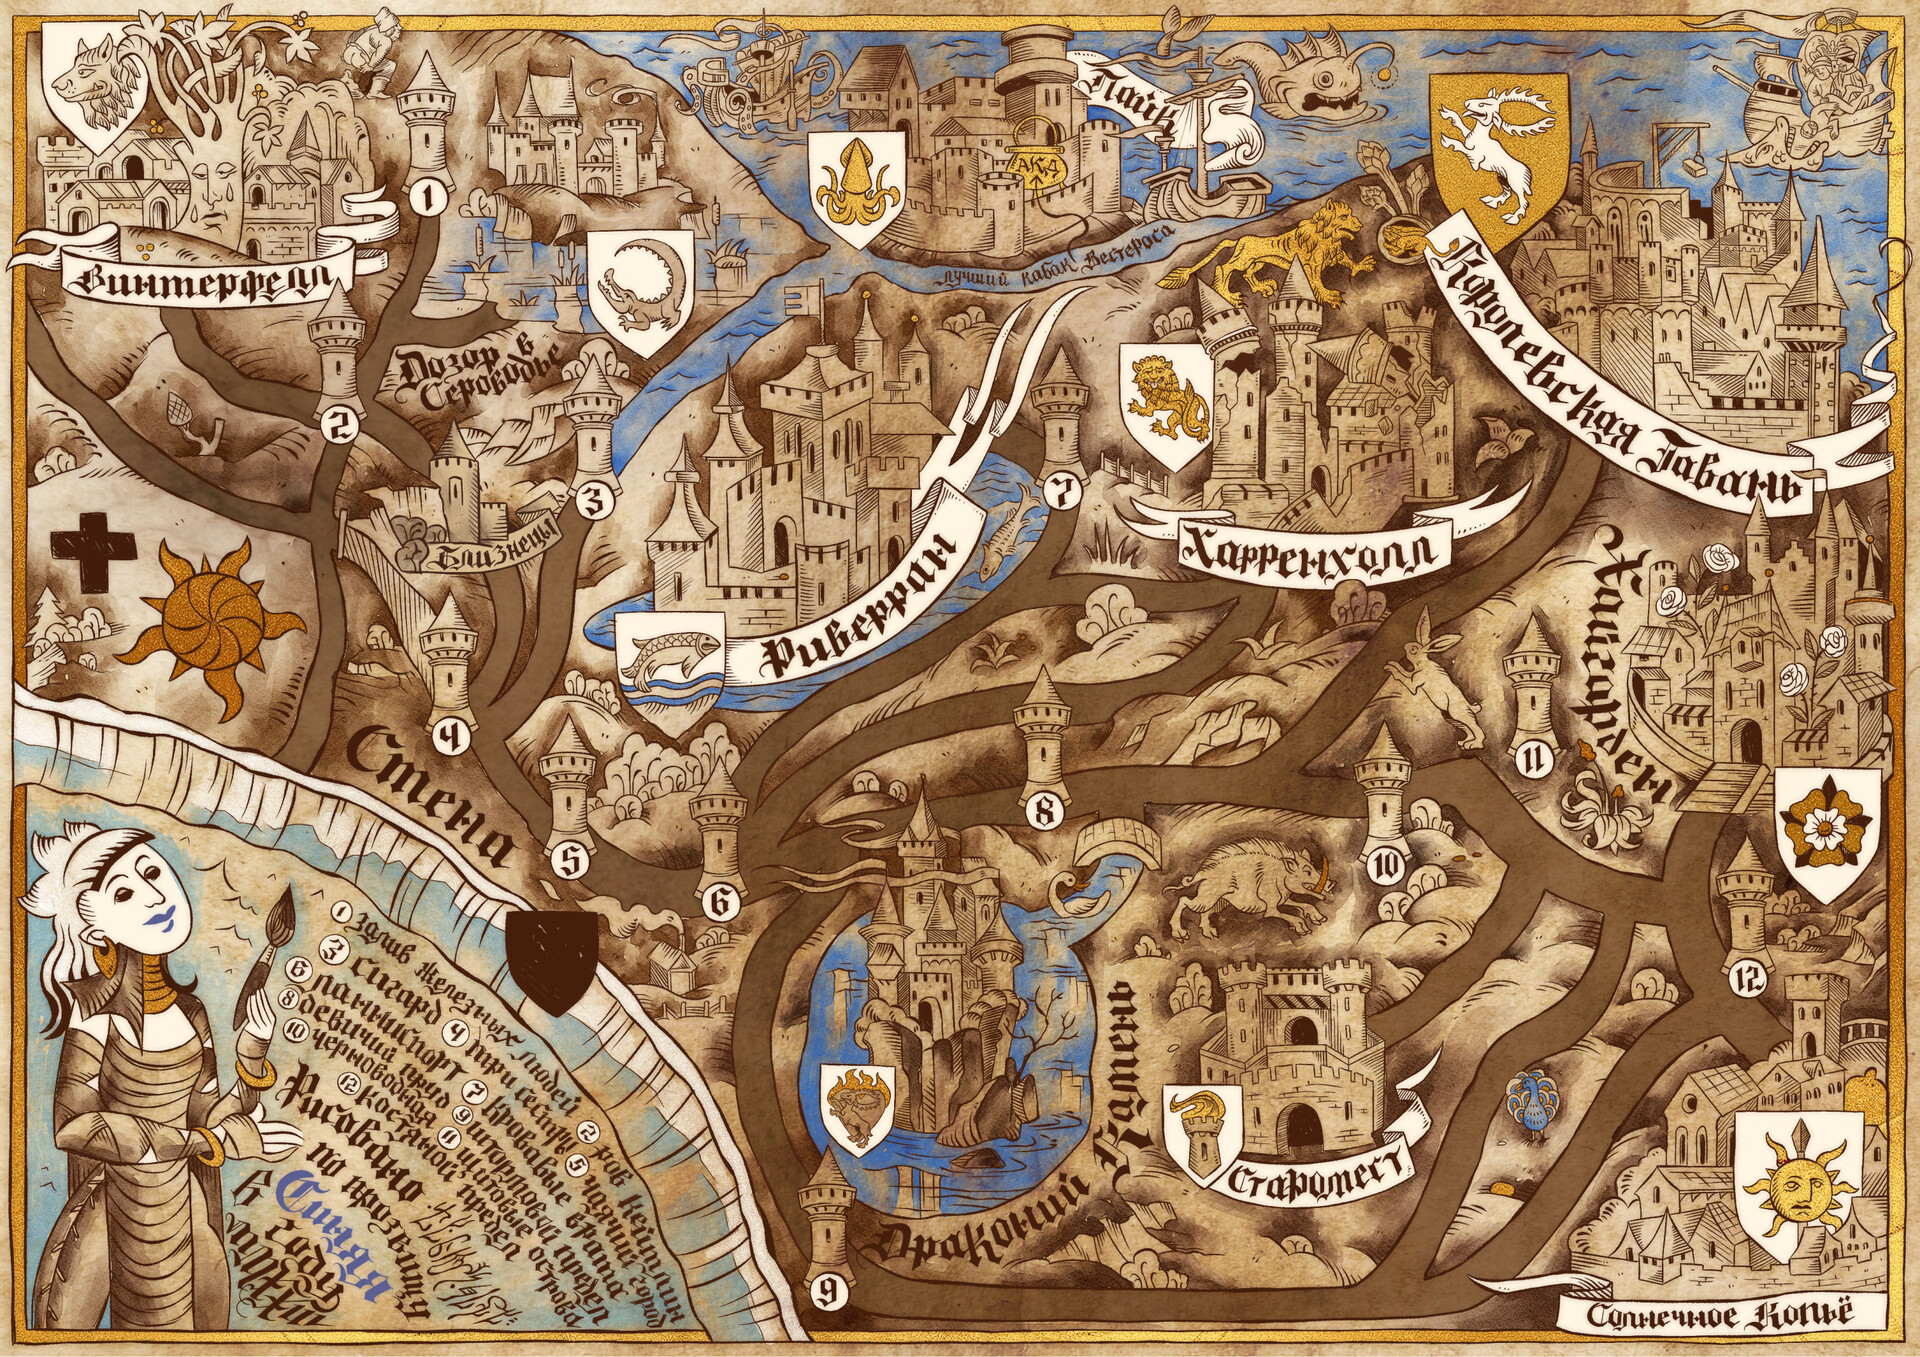 Винтерфелл
1
Пайк
АКД
лучший кабак Вестероса
Королевская Гавань
2
Дозор в
Сероводье
3
Близнецы
7
Риверран
Харренхолл
Хайгарден
4
Стена
5
6
8
10
11
12
Драконий Камень
Старомест
9
Солнечное Копьё
1 залив Железных людей 2 ров Кейтилин
3 сигард 4 три сестры 5 чаячий город
6 ланниспорт 7 кровавые врата
8 девичий пруд 9 штормовой предел
10 черноводная 11 щитовые острова
12 костяной предел
Рисовано
по прозвищу
Синяя
в
году